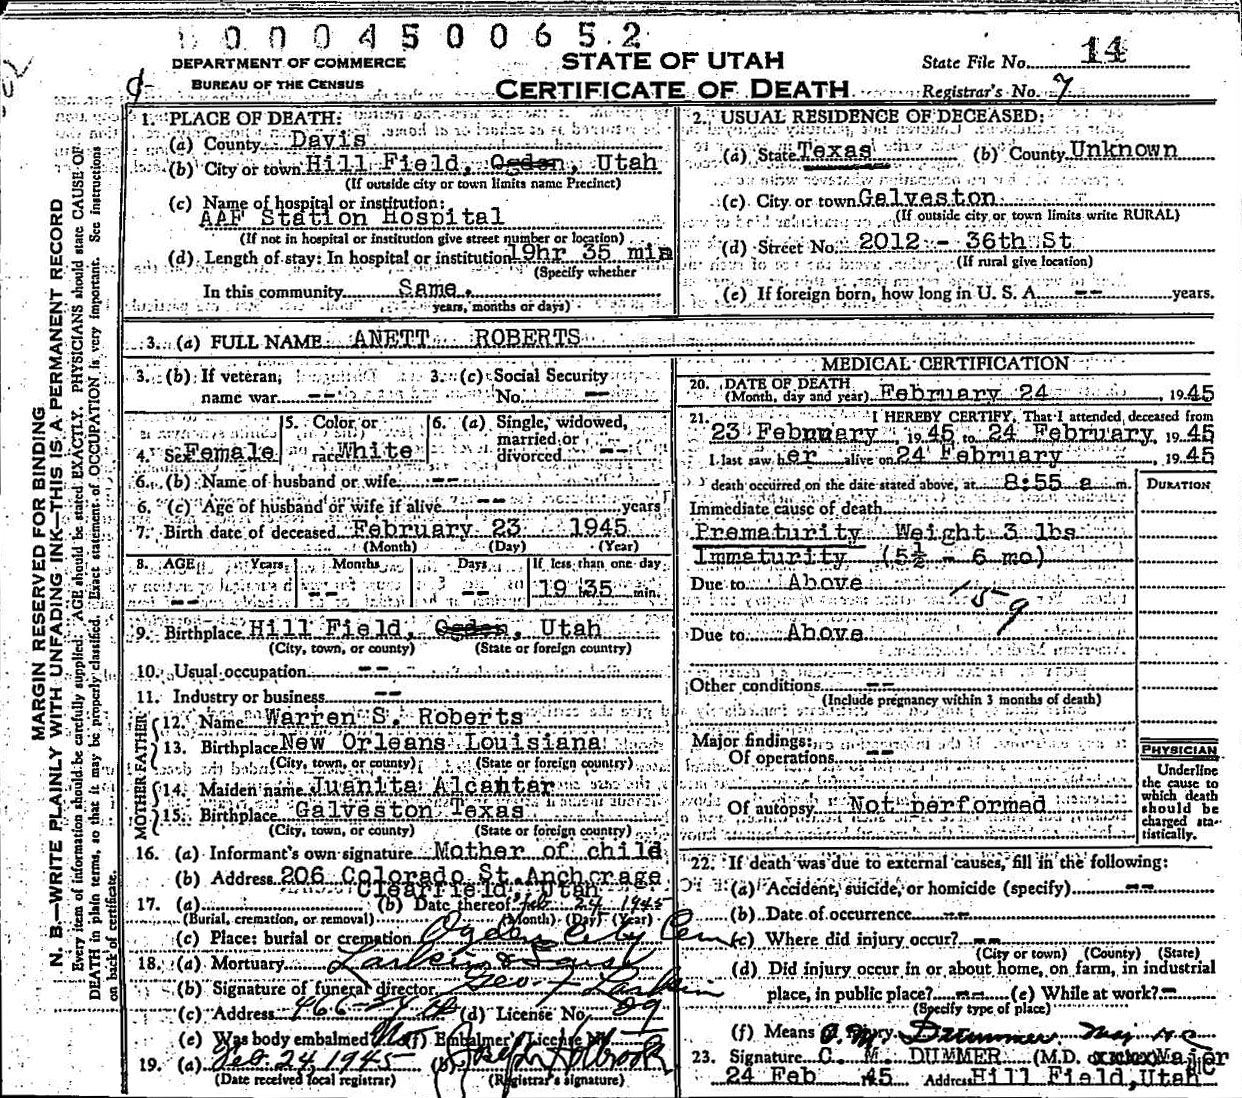 0 0 0 4 5 0 0 6 5 2
DEPARTMENT OF COMMERCE
BUREAU OF THE CENSUS
STATE OF UTAH
CERTIFICATE OF DEATH
State File No. 14
Registrar's No. 7
MARGIN RESERVED FOR BINDING
N. B.—WRITE PLAINLY WITH UNFADING INK—THIS IS A PERMANENT RECORD
Every item of information should be carefully supplied. AGE should be stated EXACTLY. PHYSICIANS should state CAUSE OF
DEATH in plain terms, so that it may be properly classified. Exact statement of OCCUPATION is very important. See instructions
on back of certificate.
1. PLACE OF DEATH:
(a) County Davis
(b) City or town Hill Field, Ogden, Utah
(If outside city or town limits name Precinct)
(c) Name of hospital or institution:
AAF Station Hospital
(If not in hospital or institution give street number or location)
(d) Length of stay: In hospital or institution 19hr 35 min
(Specify whether
In this community Same.
years, months or days)
2. USUAL RESIDENCE OF DECEASED:
(a) State Texas (b) County Unknown
(c) City or town Galveston
(If outside city or town limits write RURAL)
(d) Street No. 2012 - 36th St
(If rural give location)
(e) If foreign born, how long in U. S. A. -- years.
3. (a) FULL NAME ANETT ROBERTS
3. (b) If veteran, name war --
3. (c) Social Security No. --
4. Sex Female
5. Color or race White
6. (a) Single, widowed, married or divorced --
6. (b) Name of husband or wife --
6. (c) Age of husband or wife if alive -- years
7. Birth date of deceased February 23 1945
(Month) (Day) (Year)
8. AGE Years Months Days If less than one day
-- -- -- 19 35 min.
9. Birthplace Hill Field, Ogden, Utah
(City, town, or county) (State or foreign country)
10. Usual occupation --
11. Industry or business --
FATHER
12. Name Warren S. Roberts
13. Birthplace New Orleans Louisiana
(City, town, or county) (State or foreign country)
MOTHER
14. Maiden name Juanita Alcantar
15. Birthplace Galveston Texas
(City, town, or county) (State or foreign country)
16. (a) Informant's own signature Mother of child
(b) Address 206 Colorado St. Anchorage
Clearfield, Utah
17. (a) (b) Date thereof Feb 24 1945
(Burial, cremation, or removal) (Month) (Day) (Year)
(c) Place: burial or cremation Ogden City Cem
18. (a) Mortuary Larkin & Sons
(b) Signature of funeral director Geo. F Larkin
(c) Address 466-24 (d) License No. 89
(e) Was body embalmed Not (f) Embalmer License No.
19. (a) Feb. 24, 1945 (b) Joseph Holbrook
(Date received local registrar) (Registrar's signature)
MEDICAL CERTIFICATION
20. DATE OF DEATH
(Month, day and year) February 24, 1945
21. I HEREBY CERTIFY, That I attended deceased from
23 February, 1945 to 24 February, 1945
I last saw her alive on 24 February, 1945
death occurred on the date stated above, at 8:55 a m.
DURATION
Immediate cause of death
Prematurity Weight 3 lbs
Immaturity (5½ - 6 mo)
Due to Above
159
Due to Above
Other conditions --
(Include pregnancy within 3 months of death)
Major findings:
Of operations --
Of autopsy Not performed
PHYSICIAN
Underline
the cause to
which death
should be
charged sta-
tistically.
22. If death was due to external causes, fill in the following:
(a) Accident, suicide, or homicide (specify) --
(b) Date of occurrence --
(c) Where did injury occur? --
(City or town) (County) (State)
(d) Did injury occur in or about home, on farm, in industrial
place, in public place? -- (e) While at work? -
(Specify type of place)
(f) Means C. M. Dummer Maj MC
23. Signature C. M. DUMMER (M.D. Major MC
24 Feb 45 Address Hill Field, Utah